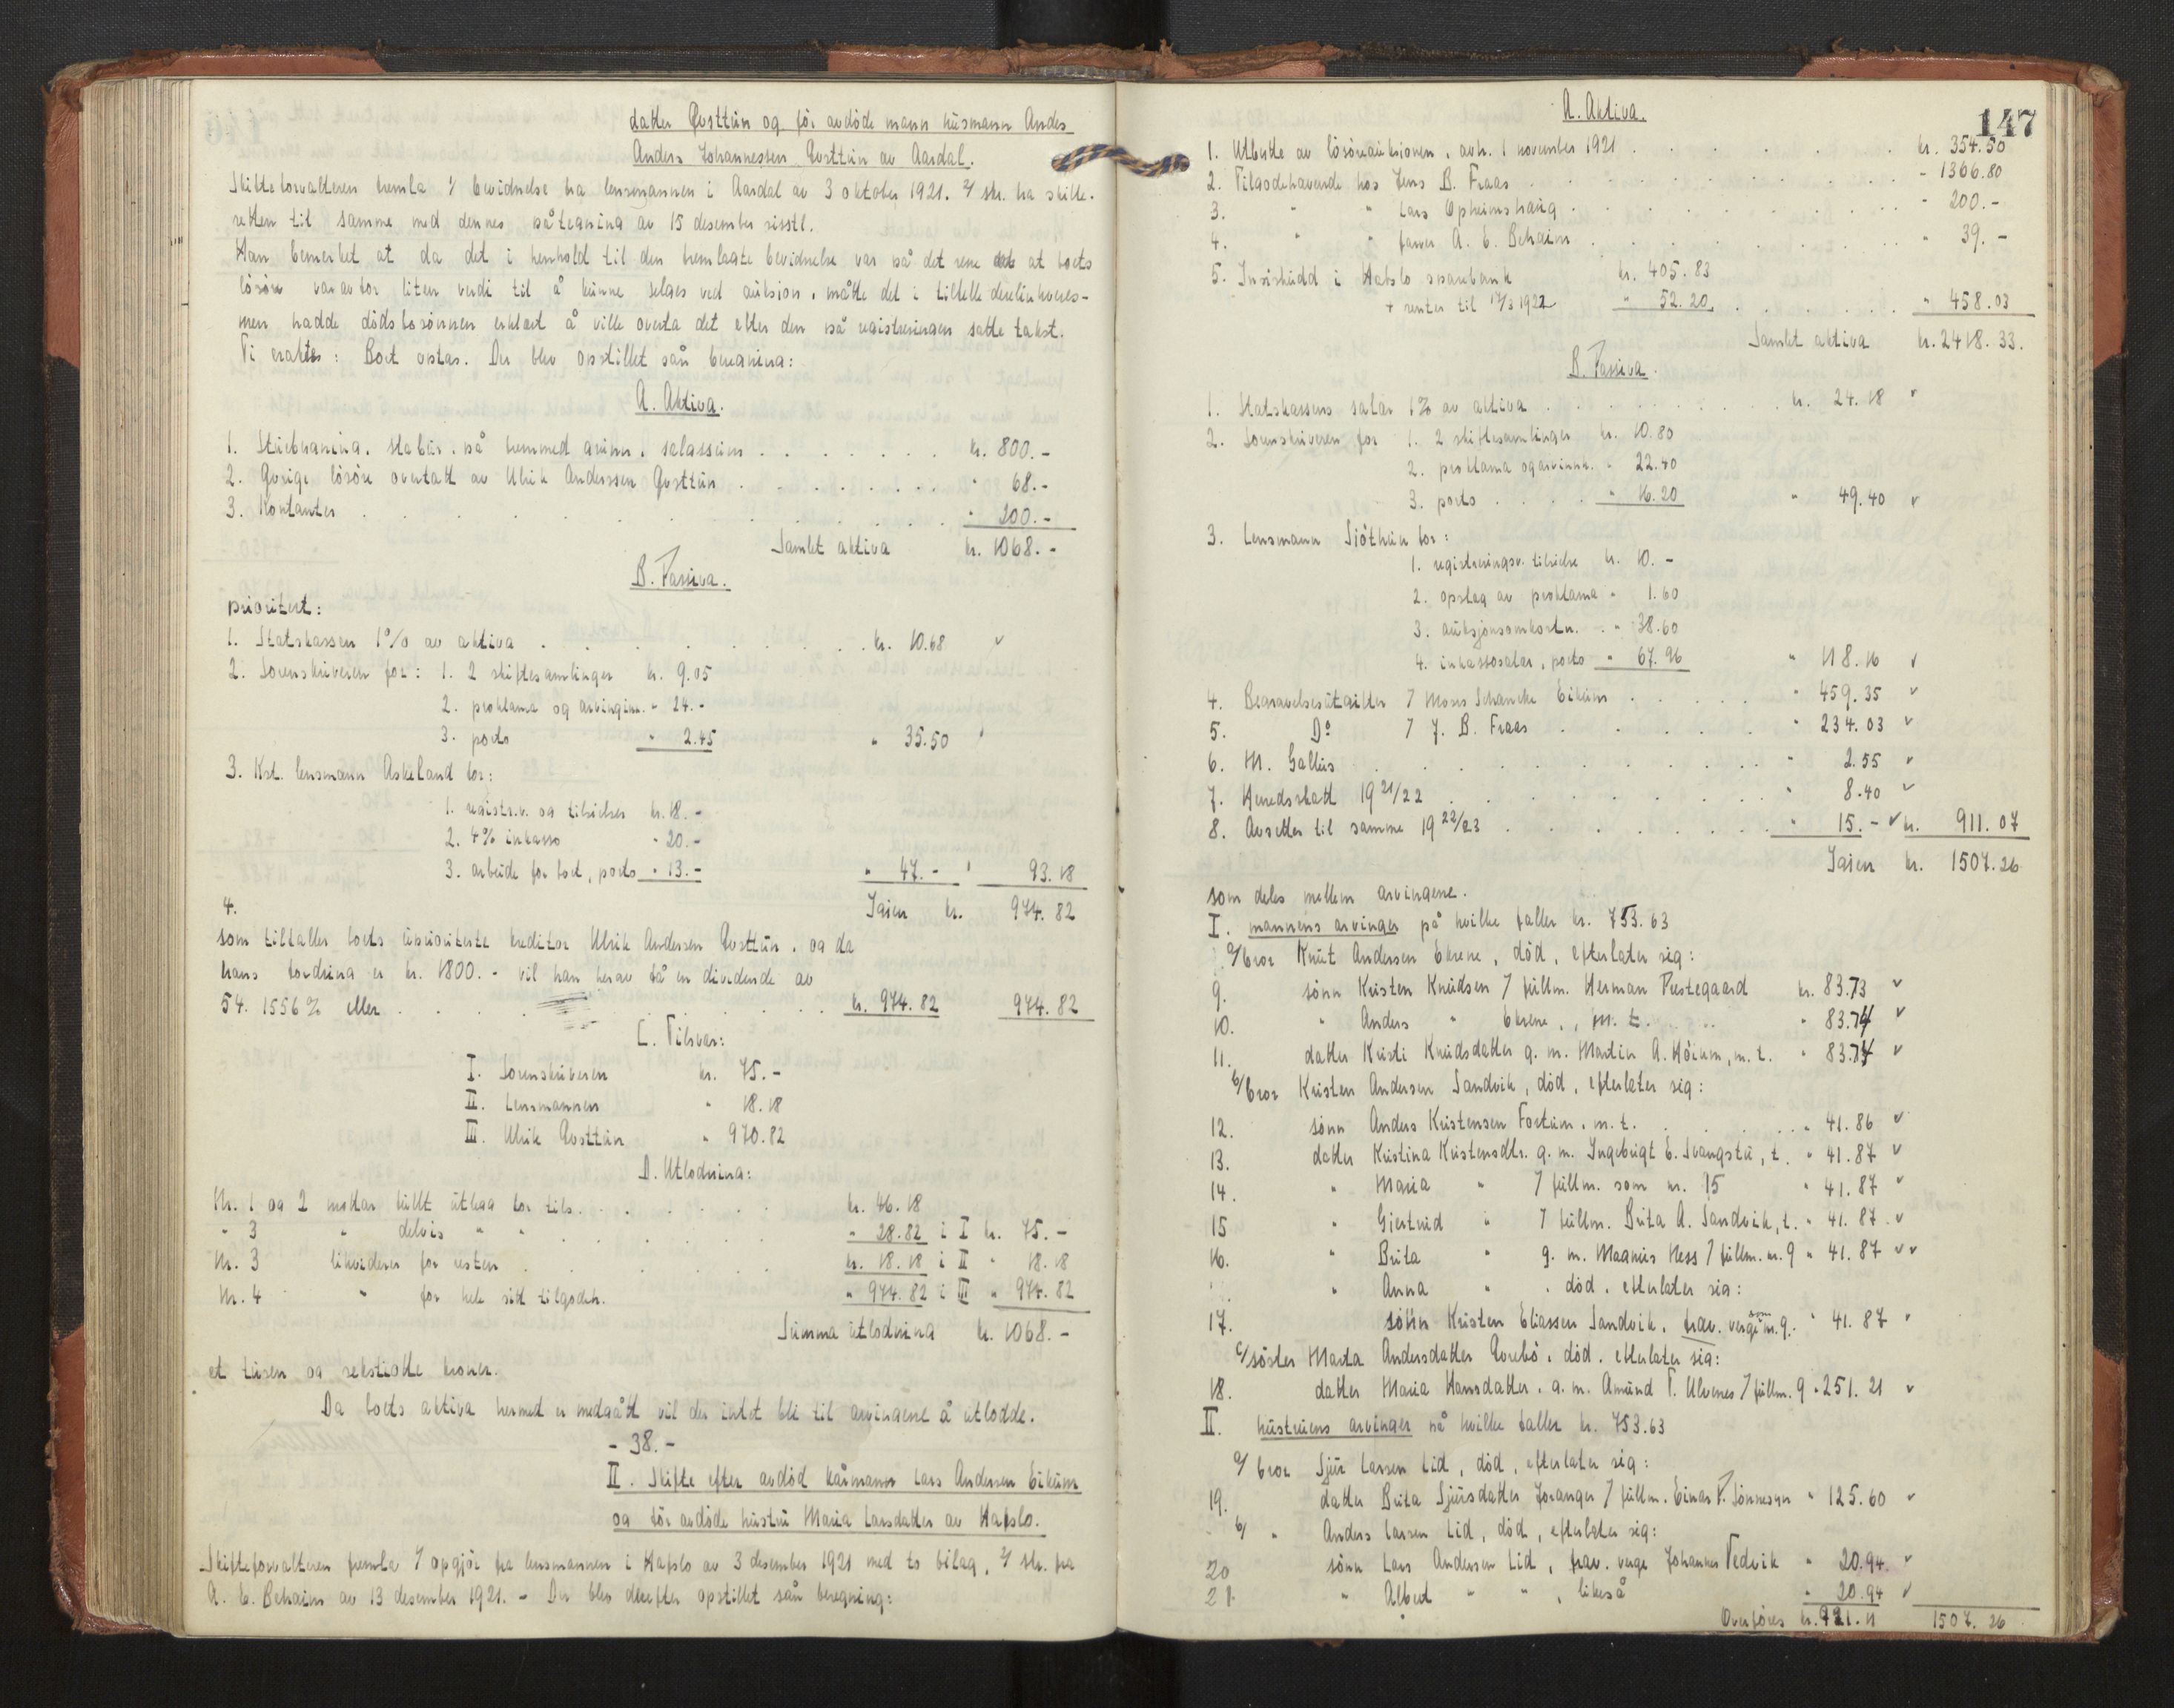 datter Qvsttun og før avdöde mann husmann Andes
Anders Johannessen Qvsttun av Aardal.
Skifteforvalteren fremla 1/ bevidnelse fra lensmannen i Aardal av 3 oktober 1921. 2/ skr. fra skifte-
retten til samme med dennes påtegning av 15 desember sisstl.
Han bemerket at da det i henhold til den fremlagte bevidnelse var på det rene at boets
lösöre var av for liten verdi til å kunne selges ved auksion,
men hadde dödsbosönnen erklært å ville overta det efter den på registreringen satte takst.
Ti eragtes: Boet optas. Der blev opstillet sån beregning:
A. Aktiva.
1. Stuebygning, stabur, på fremmed grunn, salgssum kr. 800.-
2. Övrige lösöre overtatt av Ulrik Anderssen Qvsttun " 68.-
3. Kontanter " 200.-
Samlet aktiva kr. 1068.-
B. Passiva.
prioritert:
1. Statskassen 1% av aktiva kr. 10.68
2. Sorenskriveren for: 1. 2 skiftesamlinger kr. 9.05
2. proklama og arvinginnk. " 24.-
3. porto " 2.45 " 35.50
3. Kst. lensmann Askeland for:
1. registr.v. og tilsidser kr. 18.-
2. 4% inkasso " 20.-
3. arbeide for boet, porto " 13.- " 47.- 93.18
4. Igjen kr. 974.82
som tilfaller boets uprioriterte kreditor Ulrik Andersen Qvsttun, og da
hans fordring er kr. 1800.- vil han herav få en dividende av
54.1556% eller kr. 974.82 974.82
C. Tilsvar:
I. Sorenskriveren kr. 75.-
II. Lensmannen " 18.18
III. Ulrik Qvsttun " 970.82
D. Utlodning:
Nr. 1 og 2 mottar fullt utlegg for tils. kr. 46.18
" 3 " delvis " " " 28.82 i I kr. 75.-
Nr. 3 likviderer for resten kr. 18.18 i II " 18.18
Nr. 4 " for hele sitt tilgodeh. " 974.82 i III " 974.82
Summa utlodning kr. 1068.-
et tusen og sekstiotte kroner.
Da boets aktiva hermed er medgått vil der intet bli til arvingene å utlodde.
- 38.-
II. Skifte efter avdöd kårmann Lars Andersen Eikum
og för avdöde hustru Maria Larsdatter av Hafslo.
Skifteforvalteren fremla 1/ opgjör fra lensmannen i Hafslo av 3 desember 1921 med to bilag, 2/ skr. fra
A. E. Behaim av 13 desember 1921. - Der blev derefter opstillet sån beregning:
147
A. Aktiva.
1. Utbytte av lösöreauksionen, avh. 1 november 1921 kr. 354.50
2. Tilgodehavende hos Jens B. Fraas - 1366.80
3. " " Lars Opheimshaug - 200.-
4. " " farver A. E. Behaim " 39.-
5. Innskudd i Hafslo sparebank kr. 405.83
+ renter til 17/3 1922 " 52.20 " 458.03
Samlet aktiva kr. 2418.33.
B. Passiva.
1. Statskassens salær 1% av aktiva kr. 24.18
2. Sorenskriveren for 1. 2 skiftesamlinger kr. 10.80
2. proklama og arvinnk. " 22.40
3. porto " 16.20 " 49.40
3. Lensmann Sjöthun for:
1. registreringsv. tilsidse kr. 10.-
2. opslag av proklama " 1.60
3. auksjonsomkostn. " 38.60
4. inkassosalær, porto " 67.96 " 118.16
4. Begravelsesutgifter 7 Moses Schancke Eikum " 459.35
5. Do 7 J. B. Fraas " 234.03
6. M. Gallus " 2.55
7. Herredsskatt 1921/22 " 8.40
8. Avsettes til samme 1922/23 " 15.- kr. 911.07
Igjen kr. 1507.26
som deles mellem arvingene.
I. mannens arvinger på hvilke faller kr. 753.63
a/ bror Knut Andersen Ekrene, död, efterlater sig:
9. sönn Kristen Knudsen 7 fullm. Herman Prestegaard kr. 83.73
10. " Anders " Ekrene, m. t. " 83.74
11. datter Kristi Knudsdatter g. m. Martin A. Höium, m. t. " 83.74
b/ bror Kristen Andersen Sandvik, död, efterlater sig:
12. sönn Anders Kristensen Fortun, m. t. " 41.86
13. datter Kristina Kristensdtr. g. m. Ingebrigt E. Svangstu, t. " 41.87
14. " Maria " 7 fullm. som nr. 15 " 41.87
15 " Gjertrud " 7 fullm. Brita A. Sandvik, t. " 41.87
16. " Brita " g. m. Magnus Hess 7 fullm. nr. 9 " 41.87
" Anna " död, efterlater sig:
17. sönn Kristen Eliassen Sandvik, frav. verge som nr. 9. " 41.87
c/ söster Marta Andersdatter Qvrebö, död, efterlater sig:
18. datter Maria Hansdatter, g. m. Amund T. Ulvenes 7 fullm. 9 " 251.21
II. hustruens arvinger på hvilke faller kr. 753.63
a/ bror Sjur Larsen Lid, död, efterlater sig:
19. datter Brita Sjursdatter Joranger 7 fullm. Einar P. Sönnesyn " 125.60
b/ " Anders Larsen Lid, död, efterlater sig:
20 sönn Lars Andersen Lid, frav. verge Johannes Vedvik " 20.94
21. " Albert " " , likeså " 20.94
Overföres kr. 921.11 1507.26